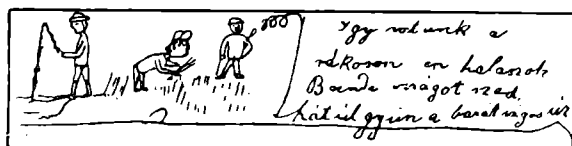 Ygy voltunk a
rákoson én halaszok
Banda virágot szed,
hátúl gyün a barátságos úr